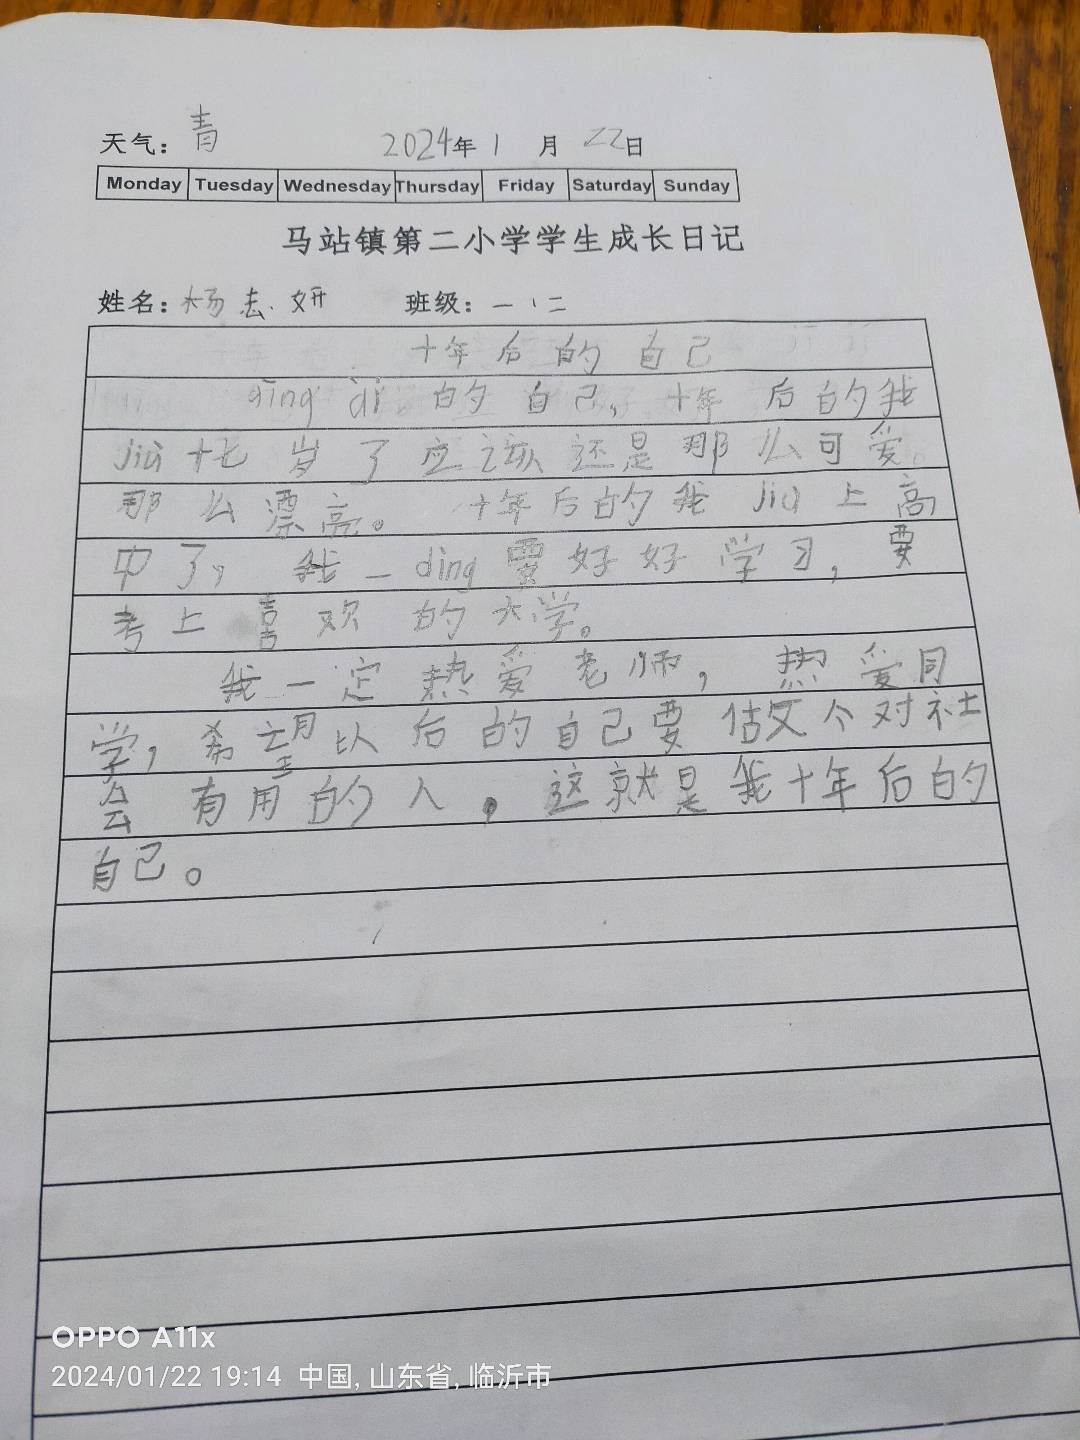 天气：青 2024年1月22日
Monday Tuesday Wednesday Thursday Friday Saturday Sunday
马站镇第二小学学生成长日记
姓名：杨志妍 班级：一、二
十年后的自己
qīng dì 的自己，十年后的我
jiù 十七岁了应该还是那么可爱。
那么漂亮。十年后的我 jiù 上高
中了，我一 ding 要好好学习，要
考上喜欢的大学。
我一定热爱老师，热爱同
学，希望以后的自己要做个对社
会有用的人。这就是我十年后的
自己。
OPPO A11x
2024/01/22 19:14 中国, 山东省, 临沂市